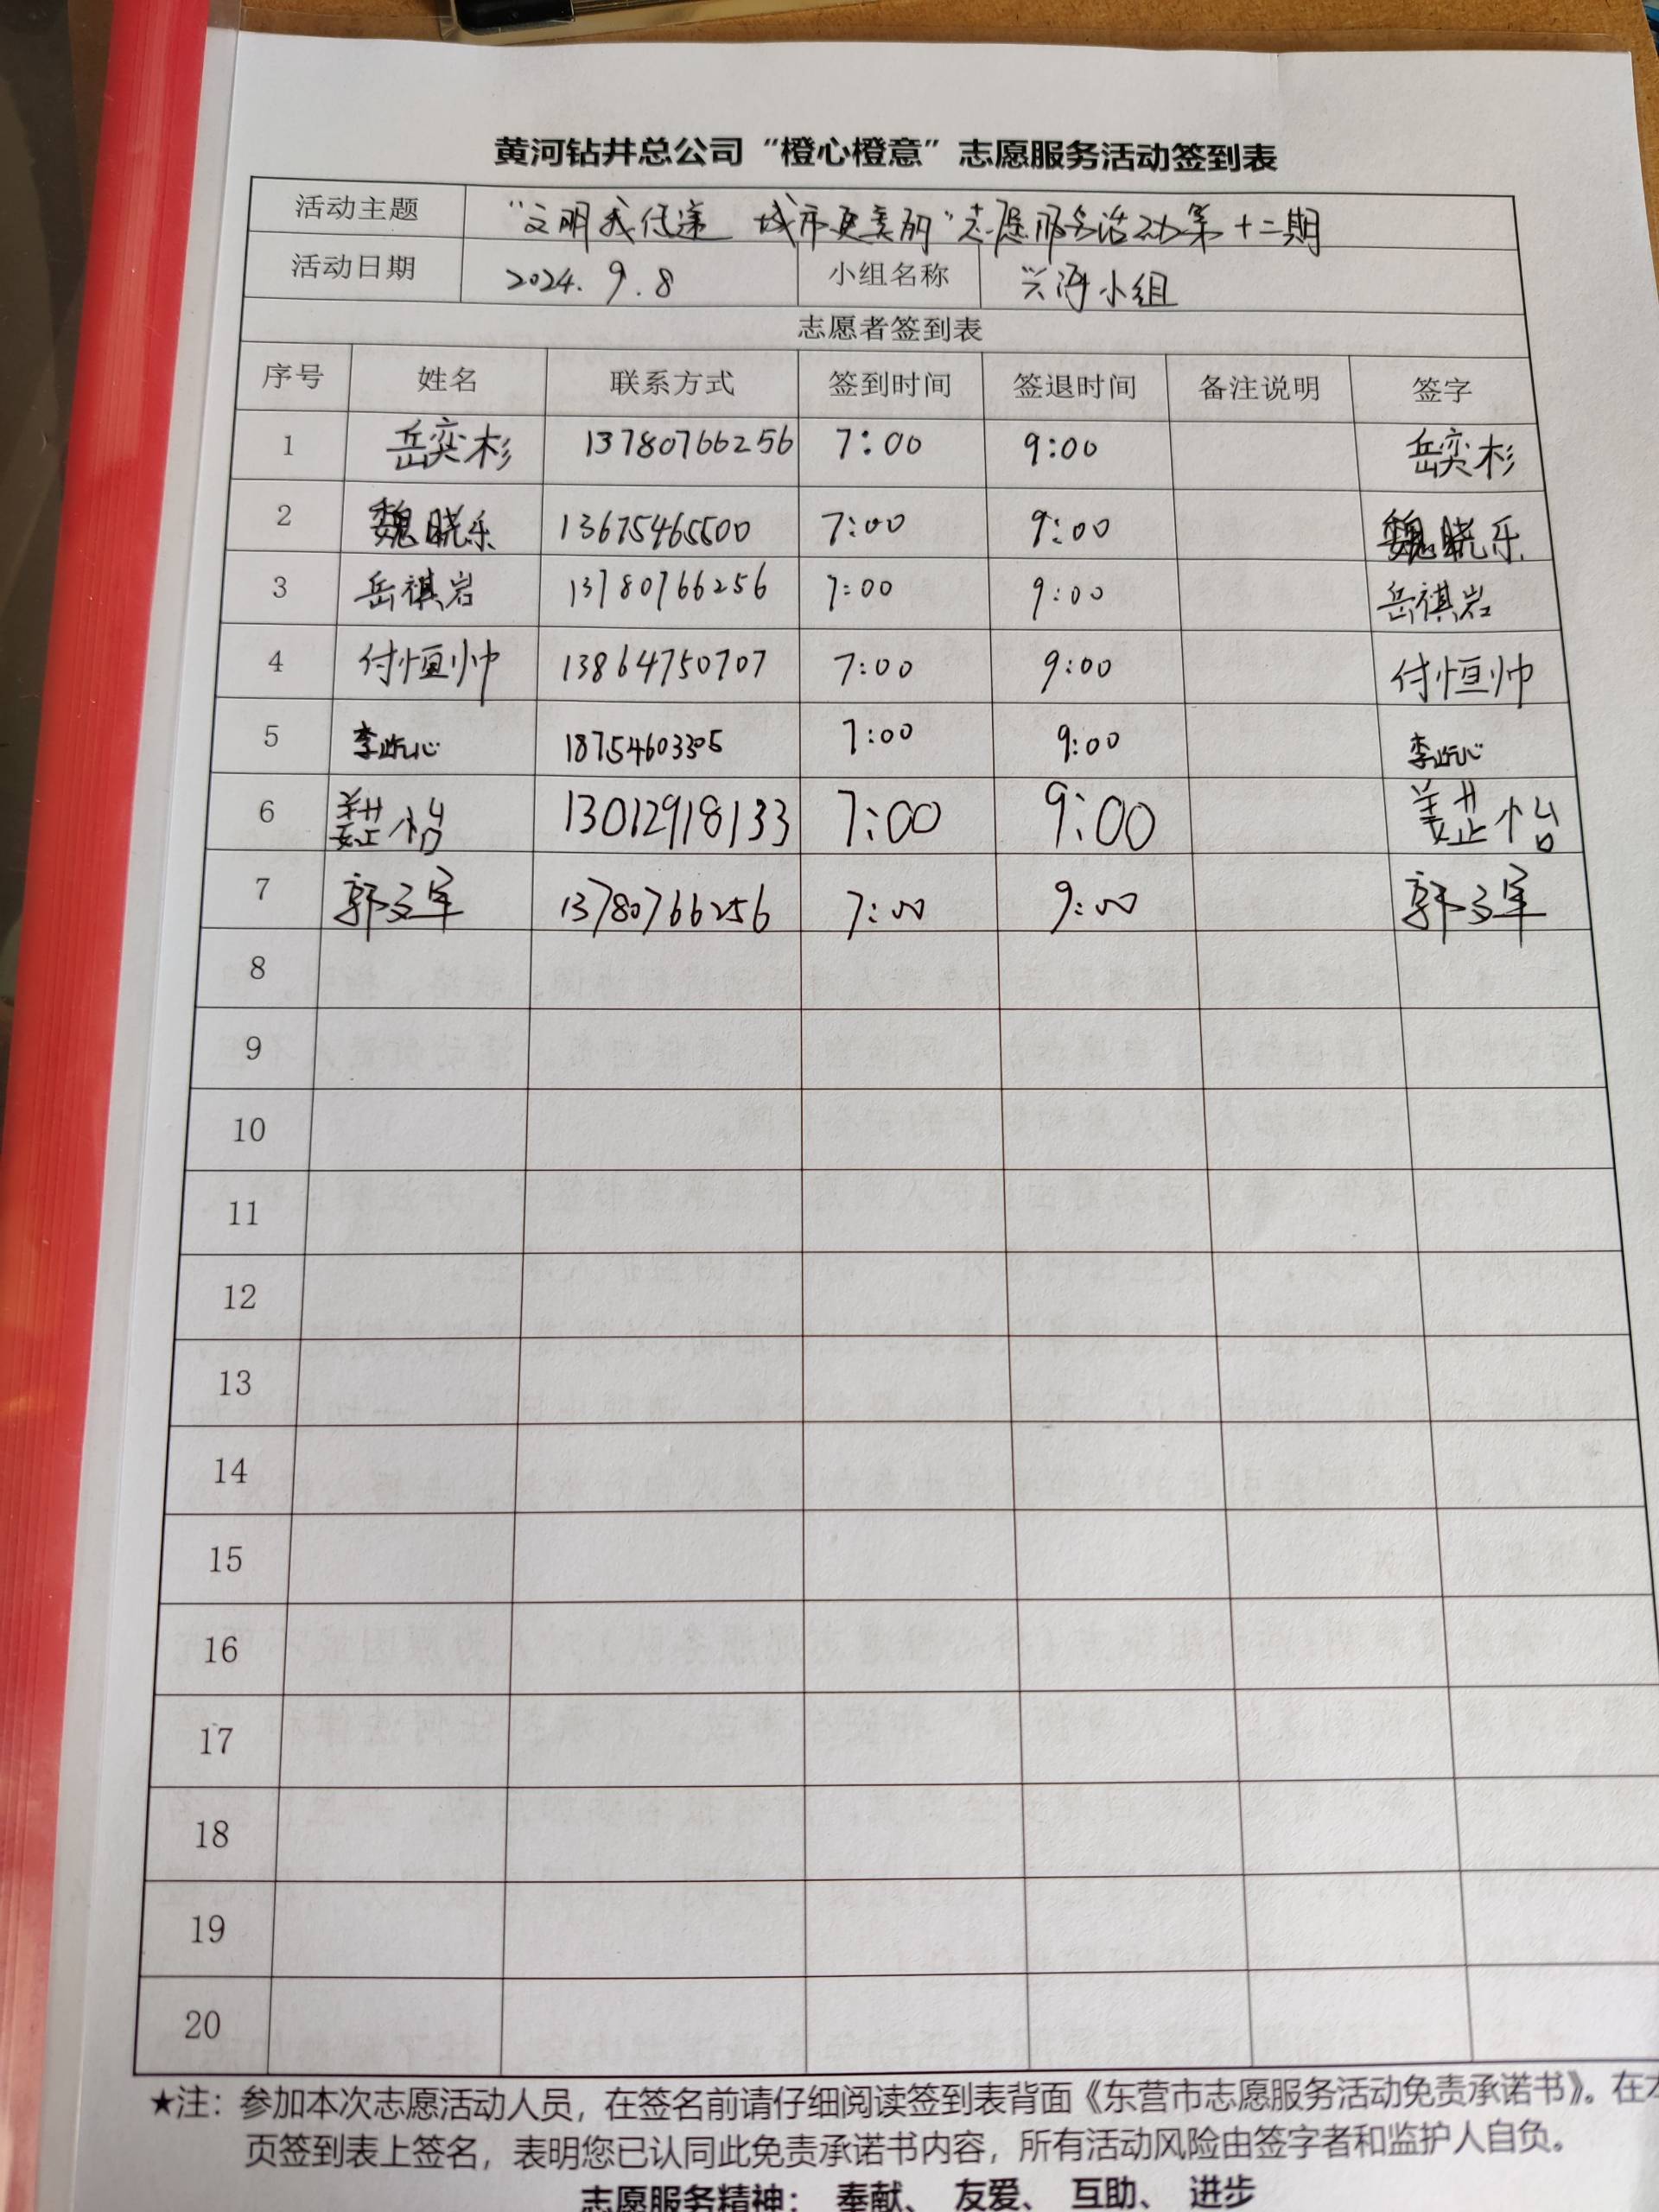 黄河钻井总公司“橙心橙意”志愿服务活动签到表
活动主题 “文明我传递 城市更美丽”志愿服务活动第十二期
活动日期 2024.9.8 小组名称 兴河小组
志愿者签到表
序号 姓名 联系方式 签到时间 签退时间 备注说明 签字
1 岳奕杉 13780766256 7:00 9:00 岳奕杉
2 魏晓乐 13675465500 7:00 9:00 魏晓乐
3 岳祺岩 13780766256 7:00 9:00 岳祺岩
4 付恒帅 13864750707 7:00 9:00 付恒帅
5 李 心 18754603305 7:00 9:00 李 心
6 姜 怡 13012918133 7:00 9:00 姜 怡
7 郭文军 13780766256 7:00 9:00 郭文军
8
9
10
11
12
13
14
15
16
17
18
19
20
★注：参加本次志愿活动人员，在签名前请仔细阅读签到表背面《东营市志愿服务活动免责承诺书》。在本
页签到表上签名，表明您已认同此免责承诺书内容，所有活动风险由签字者和监护人自负。
志愿服务精神： 奉献、 友爱、 互助、 进步